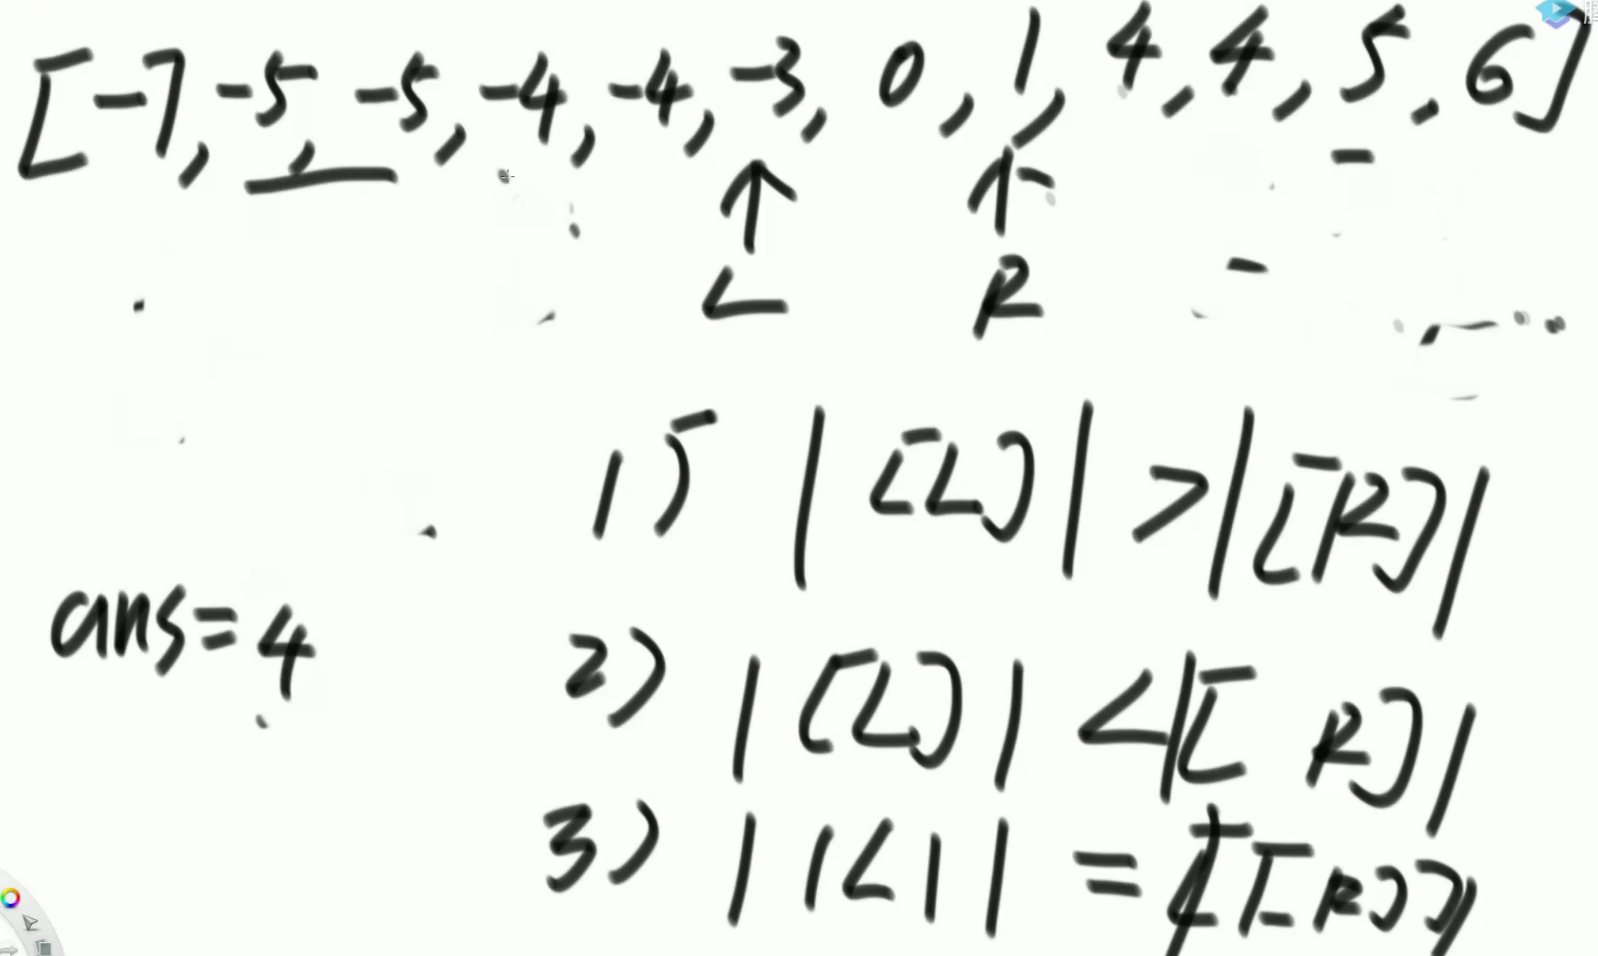 [-7, -5, -5, -4, -4, -3, 0, 1, 4, 4, 5, 6]
L R
1) |[L]| > |[R]|
ans=4
2) |[L]| < |[R]|
3) | |L| | = |[R]|